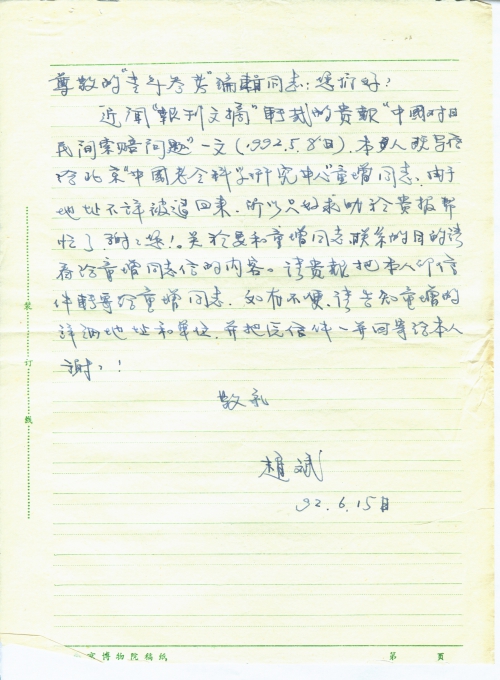 尊敬的“老年参考”编辑同志：您们好！
近闻“報刊文摘”转载的贵報“中國对日
民间索赔问题”一文（1992.5.8日），本人曾写信
给北京“中國老令科学研究中心”童增同志，由于
地址不详被退回来，所以只好求助於贵报帮
忙了，谢谢您！关於要和童增同志联系的目的请
看给童增同志信的内容。请贵報把本人的信
件转寄给童增同志，如有不便请告知童增的
详细地址和单位，并把原信件一并回寄给本人
谢谢！
敬礼
趙斌
92.6.15日
装
订
线
京博物院稿纸
第 页